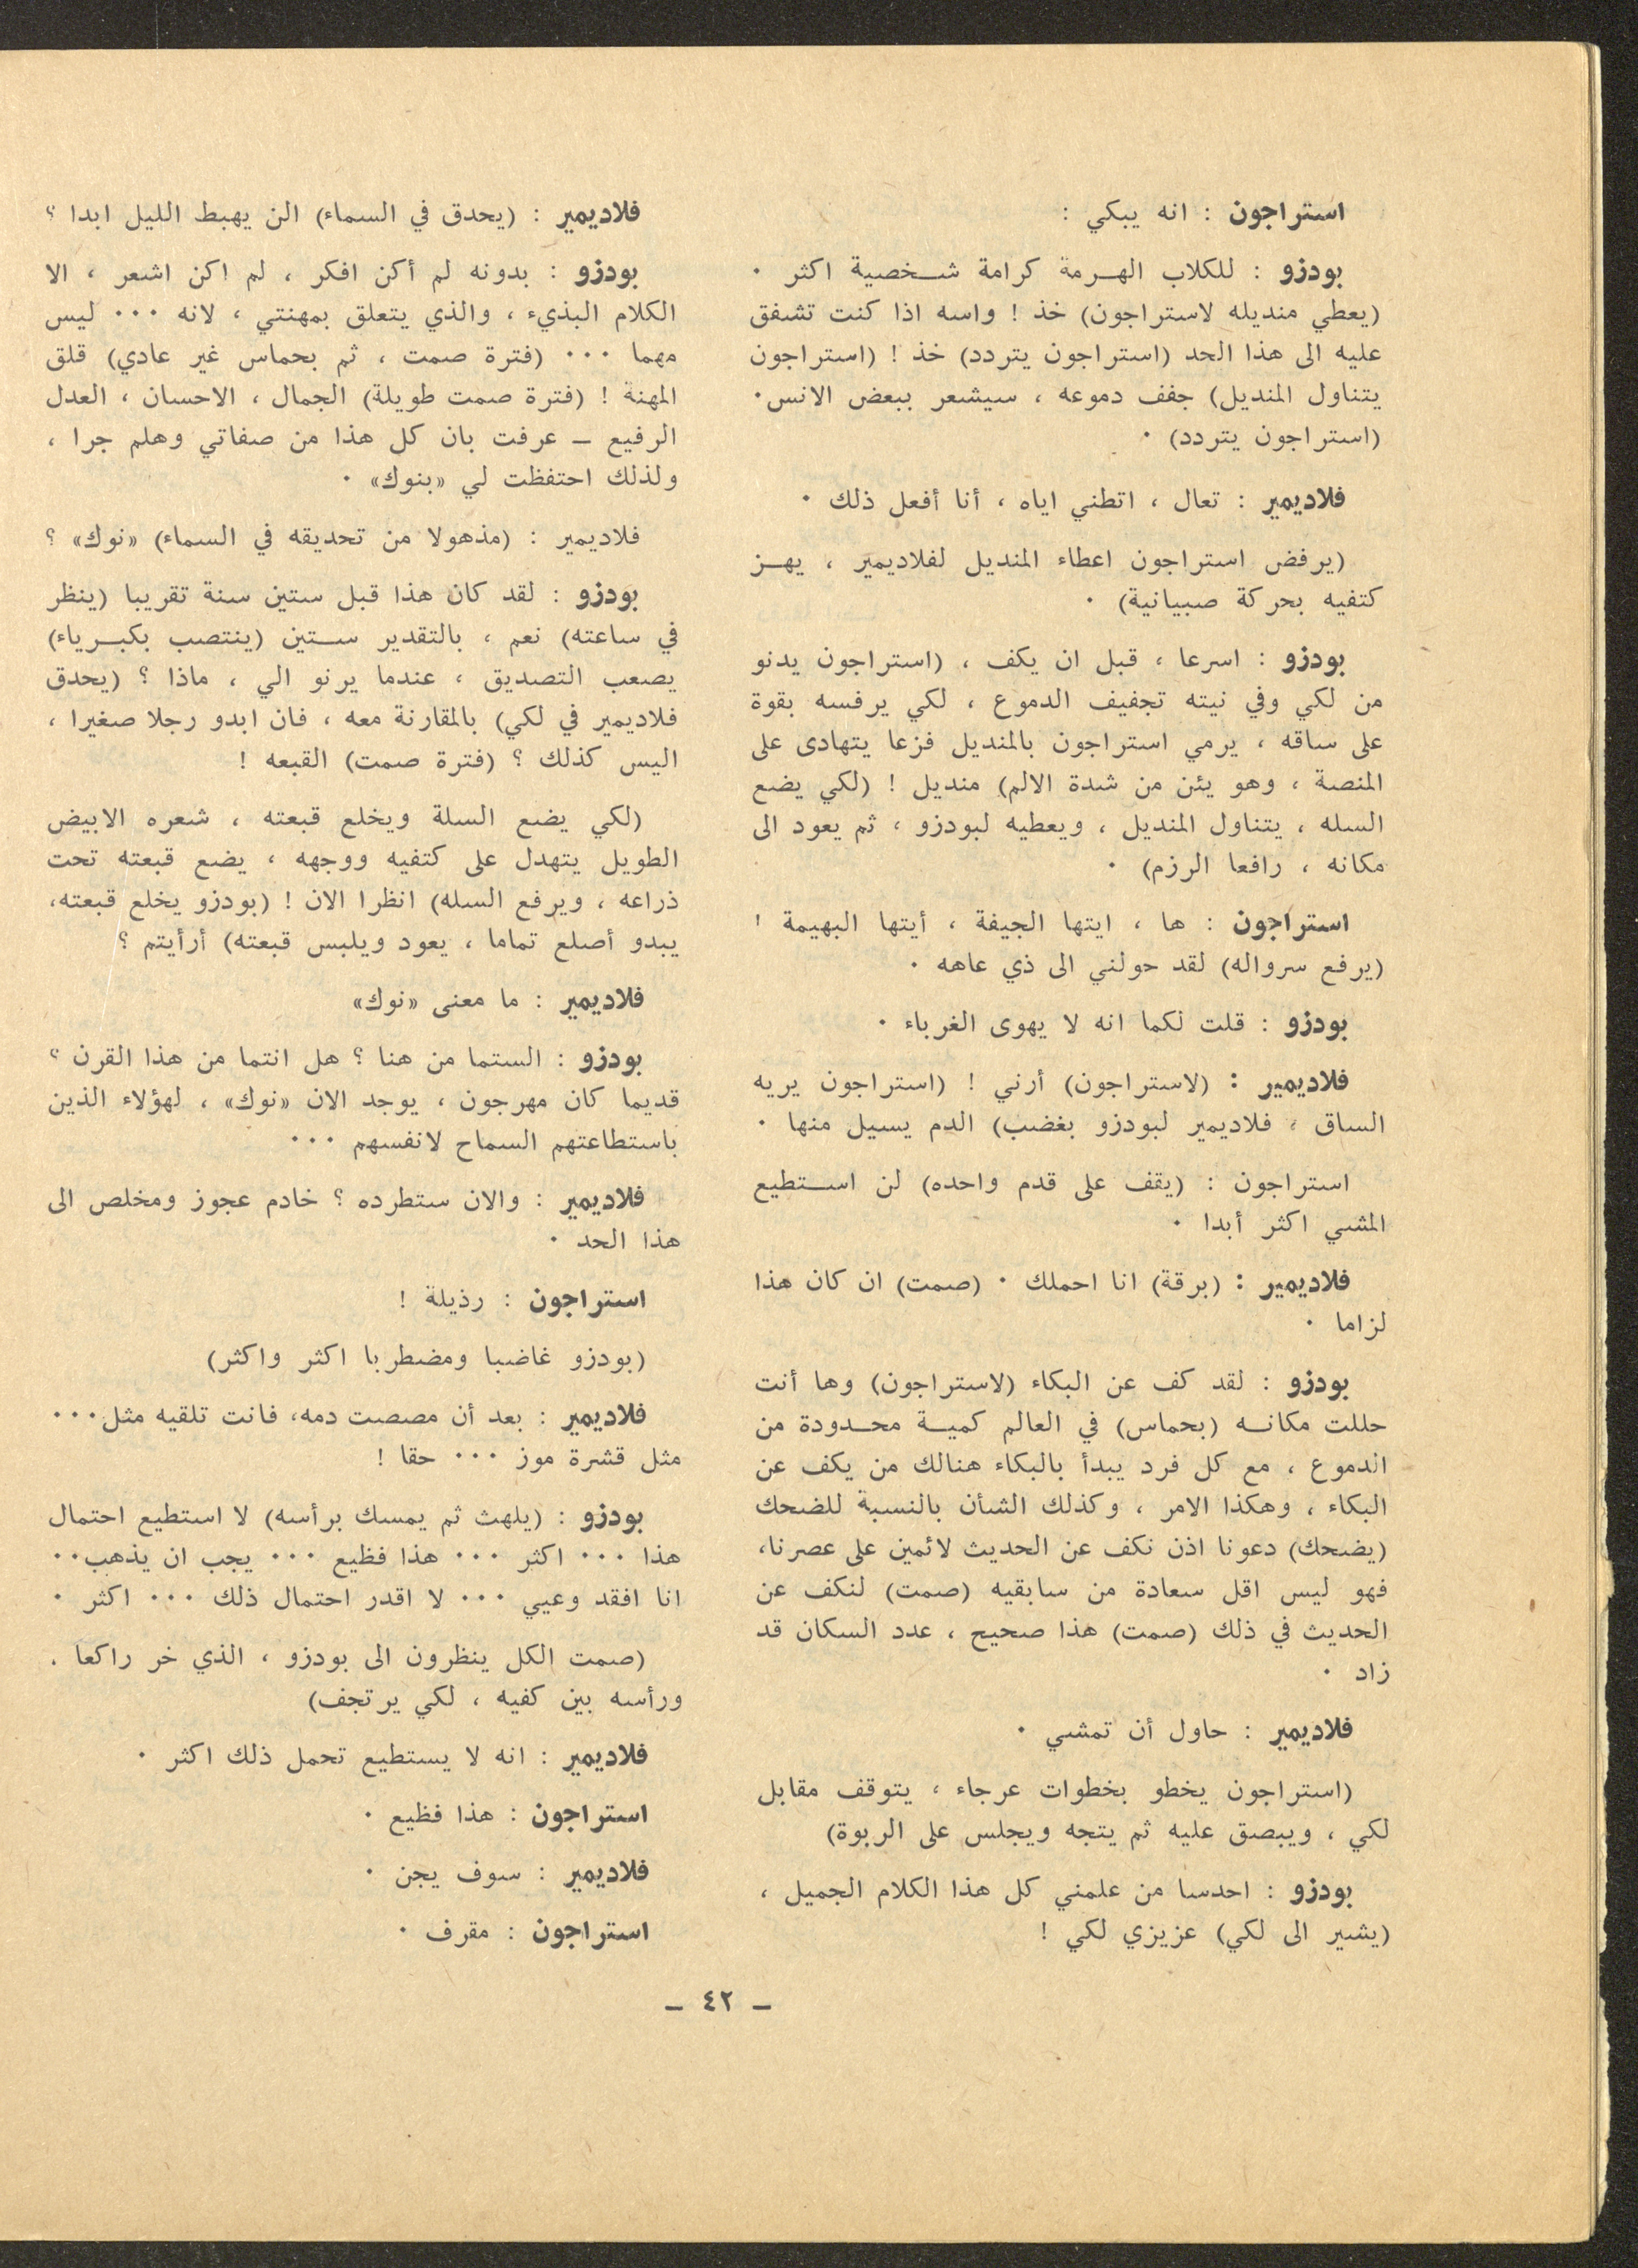 استراجون : انه يبكي :
بودزو : للكلاب الهـرمة كرامة شـخصية اكثر ٠
(يعطي منديله لاستراجون) خذ ! واسه اذا كنت تشفق
عليه الى هذا الحد (استراجون يتردد) خذ ! (استراجون
يتناول المنديل) جفف دموعه ، سيشعر ببعض الانس٠
(استراجون يتردد) ٠
فلاديمير : تعال ، اتطني اياه ، أنا أفعل ذلك ٠
(يرفض استراجون اعطاء المنديل لفلاديمير ، يهـز
كتفيه بحركة صبيانية) ٠
بودزو : اسرعا ، قبل ان يكف ، (استراجون يدنو
من لكي وفي نيته تجفيف الدموع ، لكي يرفسه بقوة
على ساقه ، يرمي استراجون بالمنديل فزعا يتهادى على
المنصة ، وهو يئن من شدة الالم) منديل ! (لكي يضع
السله ، يتناول المنديل ، ويعطيه لبودزو ، ثم يعود الى
مكانه ، رافعا الرزم) ٠
استراجون : ها ، ايتها الجيفة ، أيتها البهيمة !
(يرفع سرواله) لقد حولني الى ذي عاهه ٠
بودزو : قلت لكما انه لا يهوى الغرباء ٠
فلاديمير : (لاستراجون) أرني ! (استراجون يريه
الساق ، فلاديمير لبودزو بغضب) الدم يسيل منها ٠
استراجون : (يقف على قدم واحده) لن اسـتطيع
المشي اكثر أبدا ٠
فلاديمير : (برقة) انا احملك ٠ (صمت) ان كان هذا
لزاما ٠
بودزو : لقد كف عن البكاء (لاستراجون) وها أنت
حللت مكانـه (بحماس) في العالم كميـة محـدودة من
الدموع ، مع كل فرد يبدأ بالبكاء هنالك من يكف عن
البكاء ، وهكذا الامر ، وكذلك الشأن بالنسبة للضحك
(يضحك) دعونا اذن نكف عن الحديث لائمين على عصرنا،
فهو ليس اقل سعادة من سابقيه (صمت) لنكف عن
الحديث في ذلك (صمت) هذا صحيح ، عدد السكان قد
زاد ٠
فلاديمير : حاول أن تمشي ٠
(استراجون يخطو بخطوات عرجاء ، يتوقف مقابل
لكي ، ويبصق عليه ثم يتجه ويجلس على الربوة)
بودزو : احدسا من علمني كل هذا الكلام الجميل ،
(يشير الى لكي) عزيزي لكي !
فلاديمير : (يحدق في السماء) الن يهبط الليل ابدا ؟
بودزو : بدونه لم أكن افكر ، لم اكن اشعر ، الا
الكلام البذيء ، والذي يتعلق بمهنتي ، لانه ٠٠٠ ليس
مهما ٠٠٠ (فترة صمت ، ثم بحماس غير عادي) قلق
المهنة ! (فترة صمت طويلة) الجمال ، الاحسان ، العدل
الرفيع ــ عرفت بان كل هذا من صفاتي وهلم جرا ،
ولذلك احتفظت لي «بنوك» ٠
فلاديمير : (مذهولا من تحديقه في السماء) «نوك» ؟
بودزو : لقد كان هذا قبل ستين سنة تقريبا (ينظر
في ساعته) نعم ، بالتقدير سـتين (ينتصب بكبـرياء)
يصعب التصديق ، عندما يرنو الي ، ماذا ؟ (يحدق
فلاديمير في لكي) بالمقارنة معه ، فان ابدو رجلا صغيرا ،
اليس كذلك ؟ (فترة صمت) القبعه !
(لكي يضع السلة ويخلع قبعته ، شعره الابيض
الطويل يتهدل على كتفيه ووجهه ، يضع قبعته تحت
ذراعه ، ويرفع السله) انظرا الان ! (بودزو يخلع قبعته،
يبدو أصلع تماما ، يعود ويلبس قبعته) أرأيتم ؟
فلاديمير : ما معنى «نوك»
بودزو : الستما من هنا ؟ هل انتما من هذا القرن ؟
قديما كان مهرجون ، يوجد الان «نوك» ، لهؤلاء الذين
باستطاعتهم السماح لانفسهم ٠٠٠
فلاديمير : والان ستطرده ؟ خادم عجوز ومخلص الى
هذا الحد ٠
استراجون : رذيلة !
(بودزو غاضبا ومضطربا اكثر واكثر)
فلاديمير : بعد أن مصصت دمه، فانت تلقيه مثل٠٠٠
مثل قشرة موز ٠٠٠ حقا !
بودزو : (يلهث ثم يمسك برأسه) لا استطيع احتمال
هذا ٠٠٠ اكثر ٠٠٠ هذا فظيع ٠٠٠ يجب ان يذهب٠٠
انا افقد وعيي ٠٠٠ لا اقدر احتمال ذلك ٠٠٠ اكثر ٠
(صمت الكل ينظرون الى بودزو ، الذي خر راكعا .
ورأسه بين كفيه ، لكي يرتجف)
فلاديمير : انه لا يستطيع تحمل ذلك اكثر ٠
استراجون : هذا فظيع ٠
فلاديمير : سوف يجن ٠
استراجون : مقرف ٠
ــ ٤٢ ــ